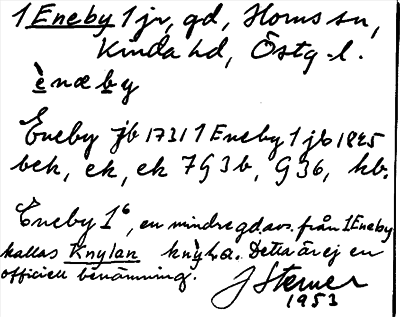 1 Eneby 1 jr, gd, Horns sn,
Kinda hd, Östg. l.
ènæby
Eneby jb 1731 1 Eneby 1 jb 1825
bek, ek, ek 7G3b, G36, kb.
Eneby 1⁶, en mindre gd, av. från 1 Eneby
kallas Knylan knỳla. Detta är ej en
officiell benämning.
J Sterner
1953